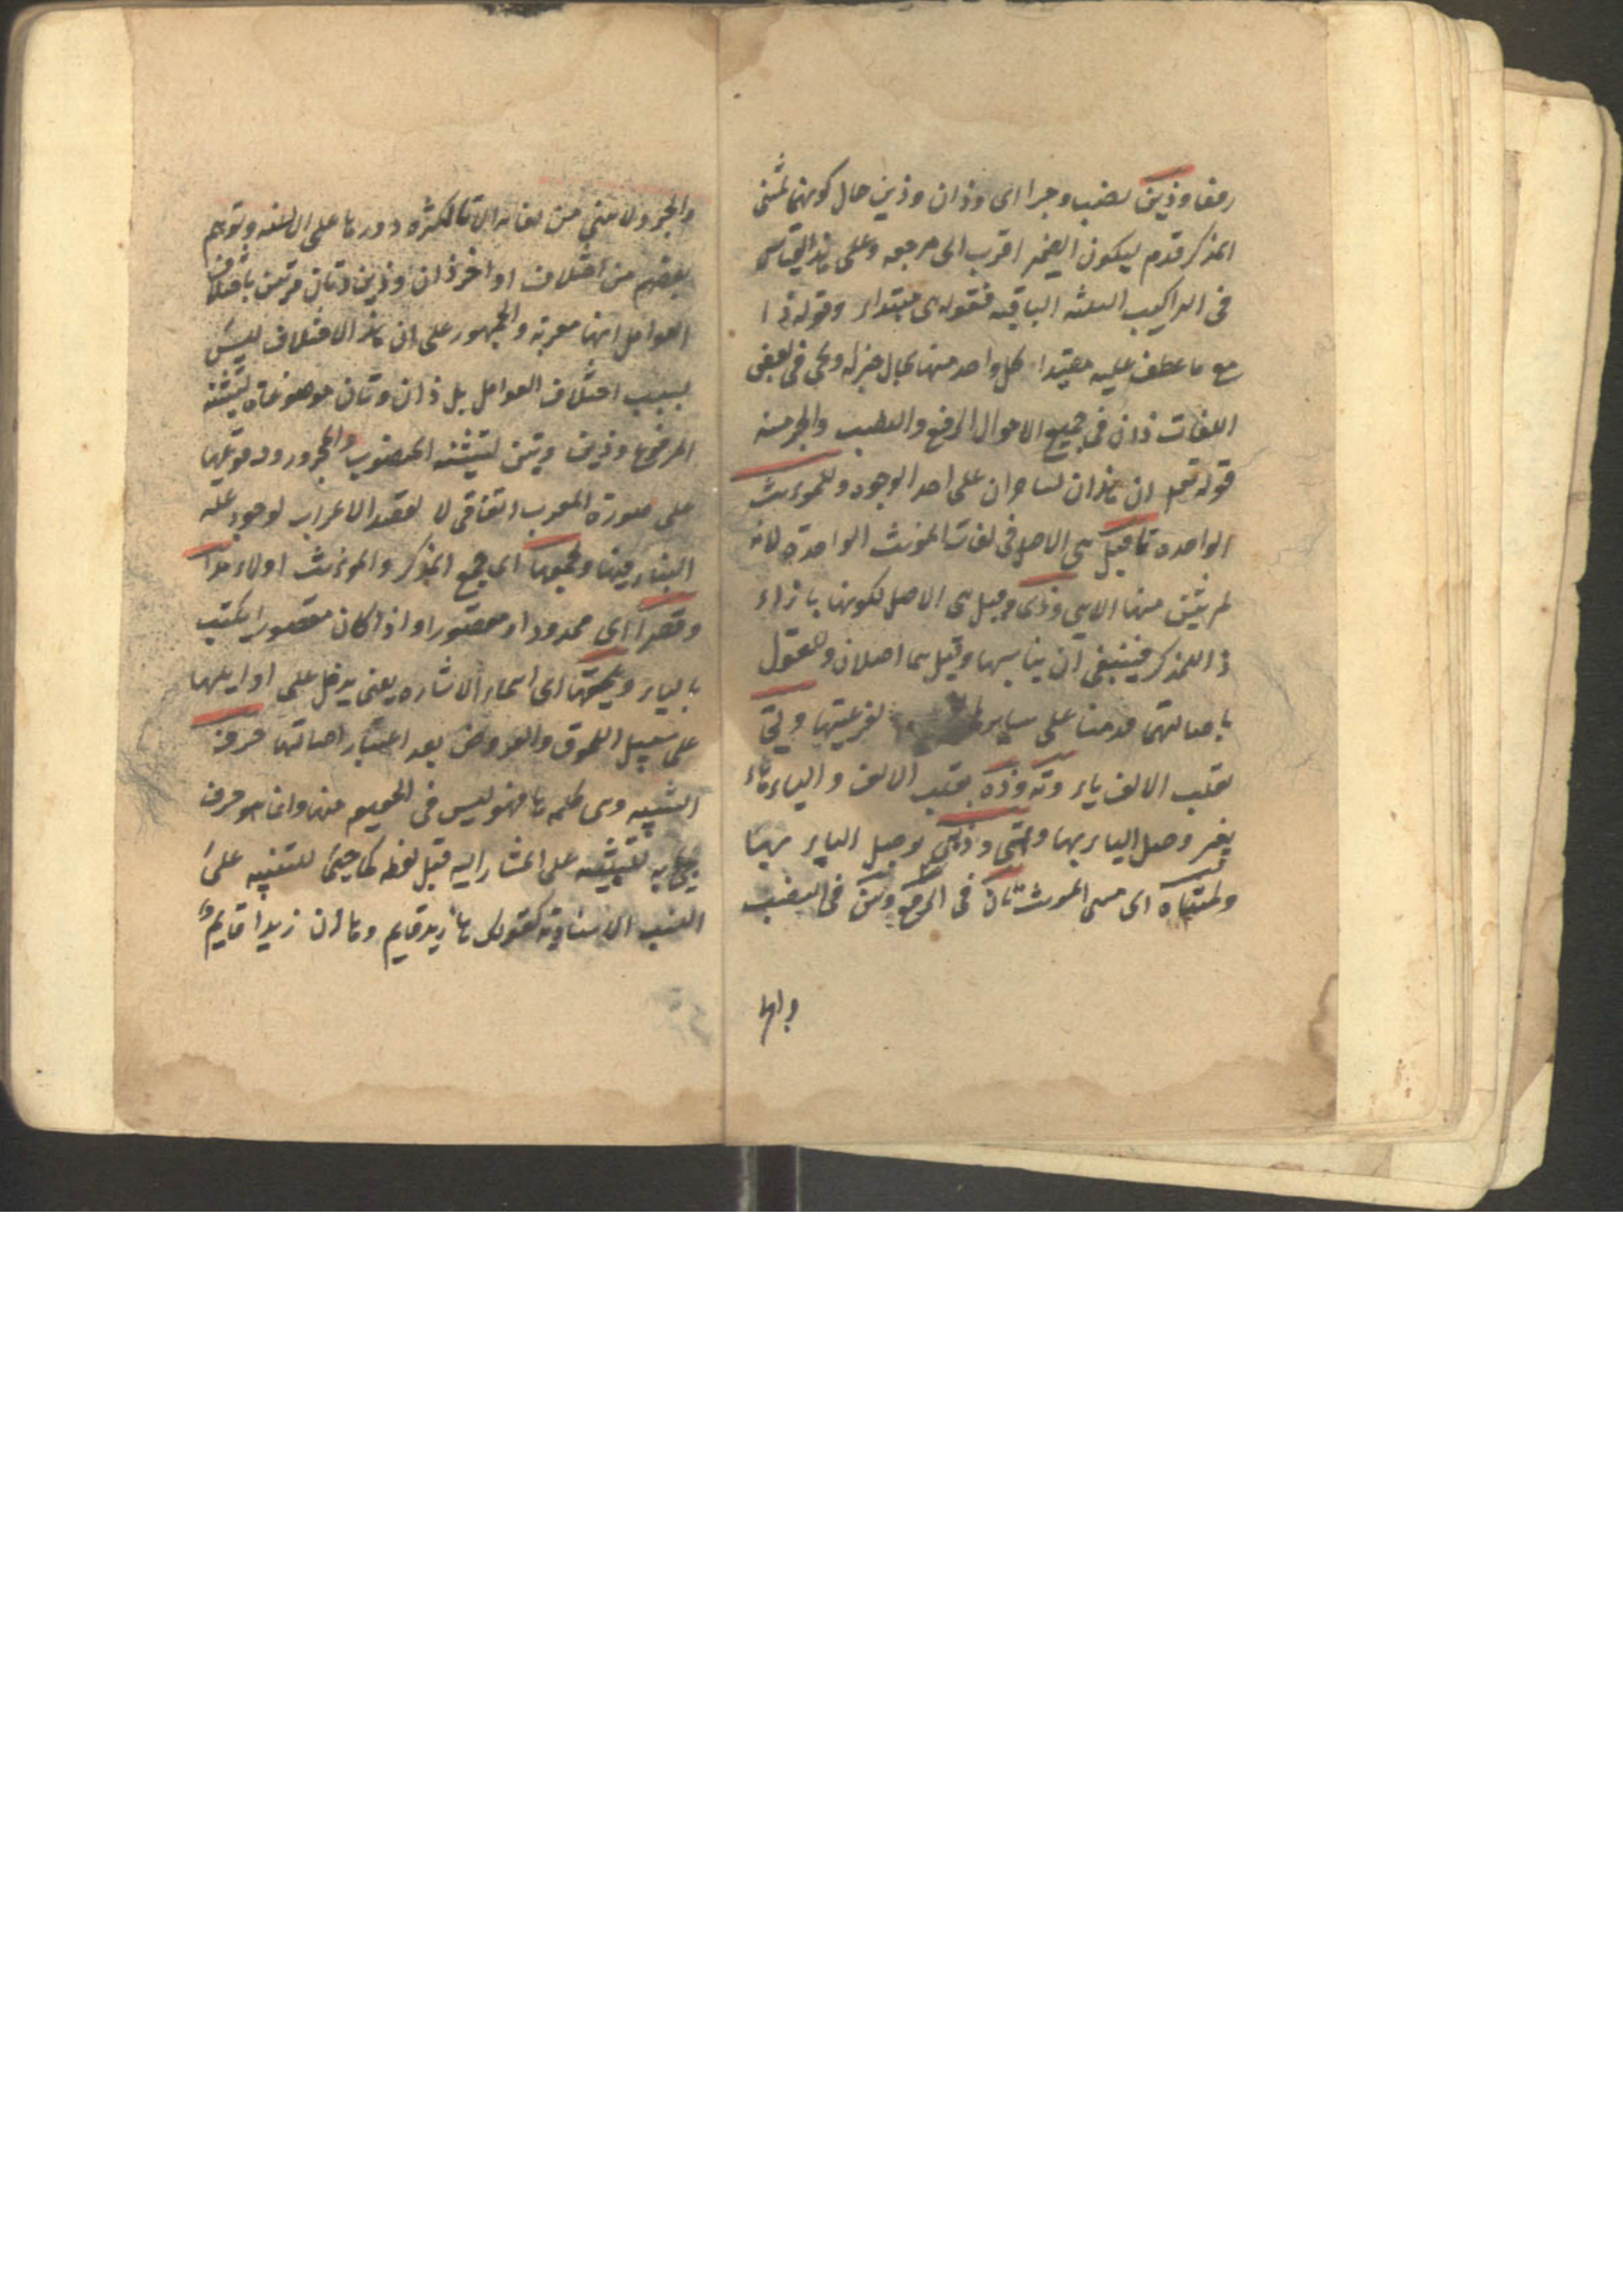 رفعا وذين نصبا وجرا اى وذان وذين حال كونهما لمثنى
المذكر قدم ليكون الضمير اقرب الى مرجعه وعلى هذا القياس
فى التراكيب الثلثه الباقيه فقوله هى مبتداء وقوله ذا
مع ما عطف عليه مقيدا كل واحد منها بحال خبره ويجئ فى بعض
اللغات ذان فى جميع الاحوال الرفع والنصب والجر منه
قوله تعم ان هذان لساحران على احد الوجوه وللمونث
الواحده تا قيل هى الاصل فى لغات المونث الواحدة لانه
لم يثن منها الا هى وذى وقيل هى الاصل لكونها بازاء
ذا للمذكر فينبغى ان يناسبها وقيل هما اصلان وللقول
باصالتهما قدمتا على سايرها لفرعيتها وتى
بقلب الالف ياء وته وذه بقلب الالف والياء هاء
بغير وصل الياء بهما وتهى وذهى بوصل الياء بهما
ولمثناه اى مثنى المونث تان فى الرفع وتين فى النصب
والجر
والجر ولا يثنى من لغاته الا تا لكثرة دورها على الالسنه وتوهم
بعضهم من اختلاف اواخر ذان وذين وتان وتين باختلاف
العوامل انها معربة والجمهور على ان هذا الاختلاف ليس
بسبب اختلاف العوامل بل ذان وتان موضوعان لتثنيه
المرفوع وذين وتين لتثنيه المنصوب والمجرور ووقوعها
على صورة المعرب اتفاقى لا لقصد الاعراب لوجود علة
البناء فيهما ولجمعهما اى جمع المذكر والمونث اولاء مدا
وقصرا اى ممدودا او مقصورا واذا كان مقصورا يكتب
بالياء ويلحقها اى اسماء الاشاره يعنى يدخل على اوايلها
على سبيل اللحوق والعروض بعد اعتبار اصالتها حرف
التنبيه وهى كلمه ها فهو ليس فى الحقيقه منها وانما هو حرف
يجئ به للتنبيه على المشار اليه قبل لفظه كما جئ للتنبيه على
النسب الاسناديه كقولك ها زيد قايم وها ان زيدا قايم